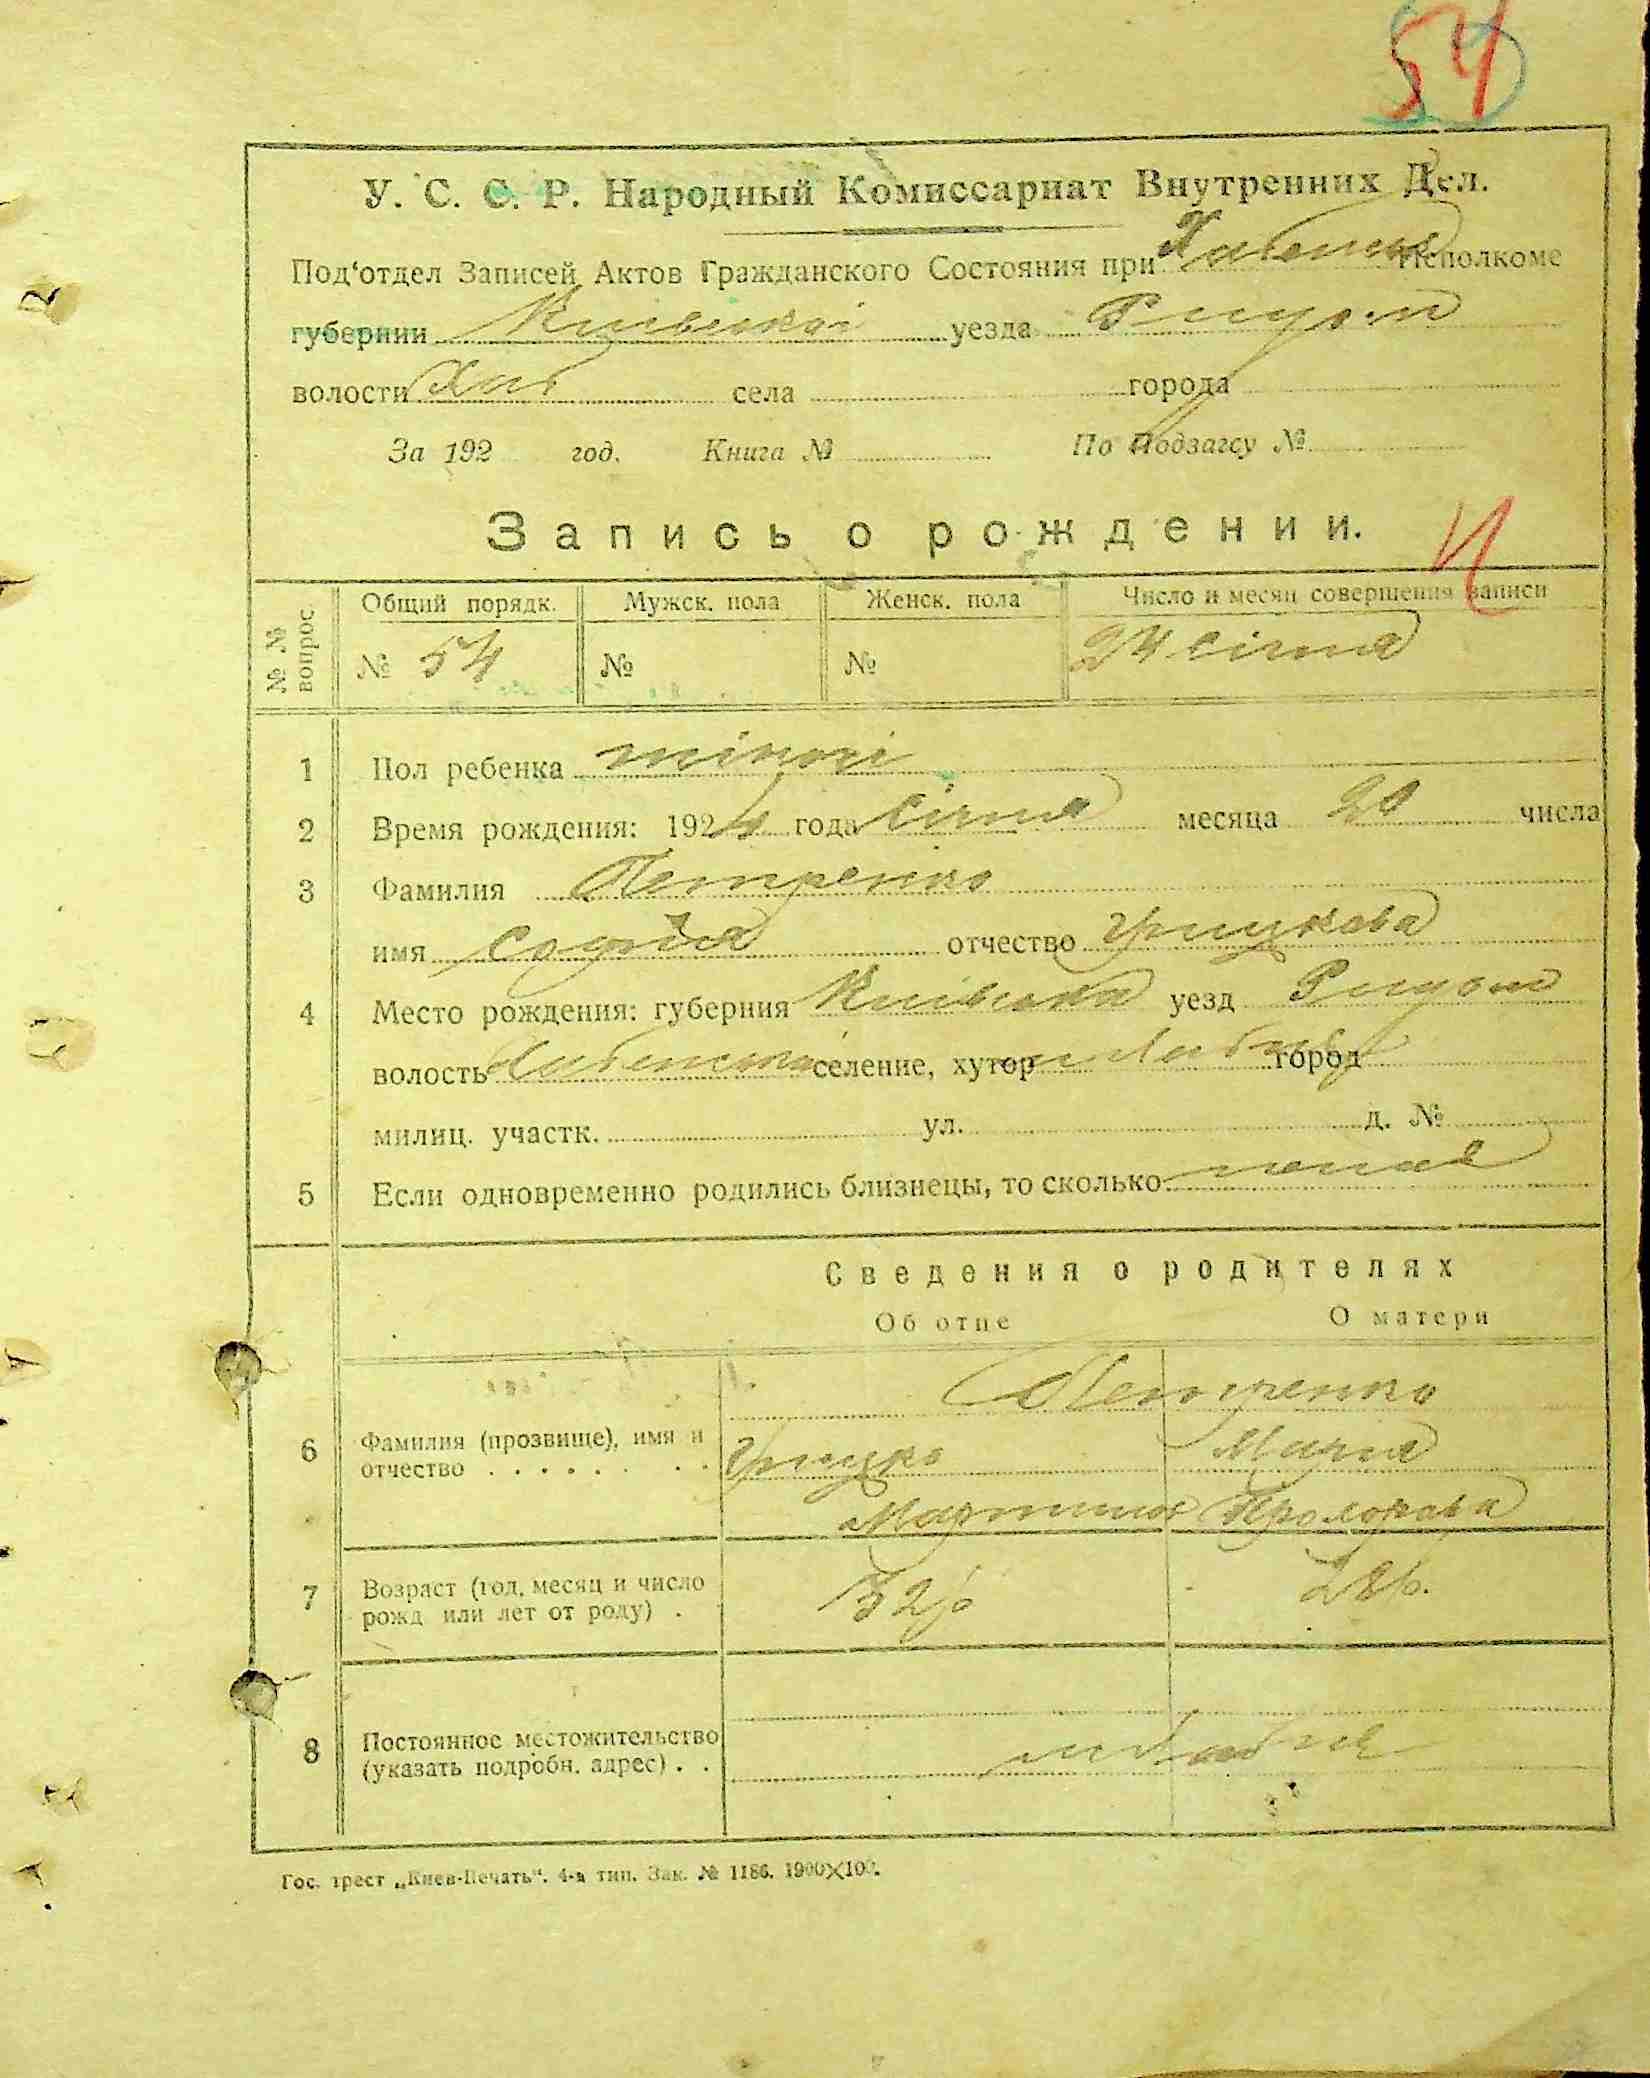 54
У. С. С. Р. Народный Комиссариат Внутренних Дел.
Под'отдел Записей Актов Гражданского Состояния при Исполкоме
губернии Київської уезда
волости Хаб села города
За 192 год. Книга № По Подзагсу №
Запись о рождении.
№ № вопрос. Общий порядк. Мужск. пола Женск. пола Число и месяц совершения записи
№ 54 № № 24 січня
1 Пол ребенка жіночі
2 Время рождения: 192 года січня месяца 20 числа
3 Фамилия Петренко
имя Софія отчество Грицкова
4 Место рождения: губерния Київська уезд
волость селение, хутор город
милиц. участк. ул. д. №
5 Если одновременно родились близнецы, то сколько
Сведения о родителях
Об отце О матери
Петренко
6 Фамилия (прозвище), имя и отчество Грицко Марія
Мартинов
7 Возраст (год, месяц и число рожд или лет от роду) . 32 р 28 р.
8 Постоянное местожительство (указать подробн. адрес) . .
Гос. трест „Киев-Печать“. 4-я тип. Зак. № 1186. 1900×100.